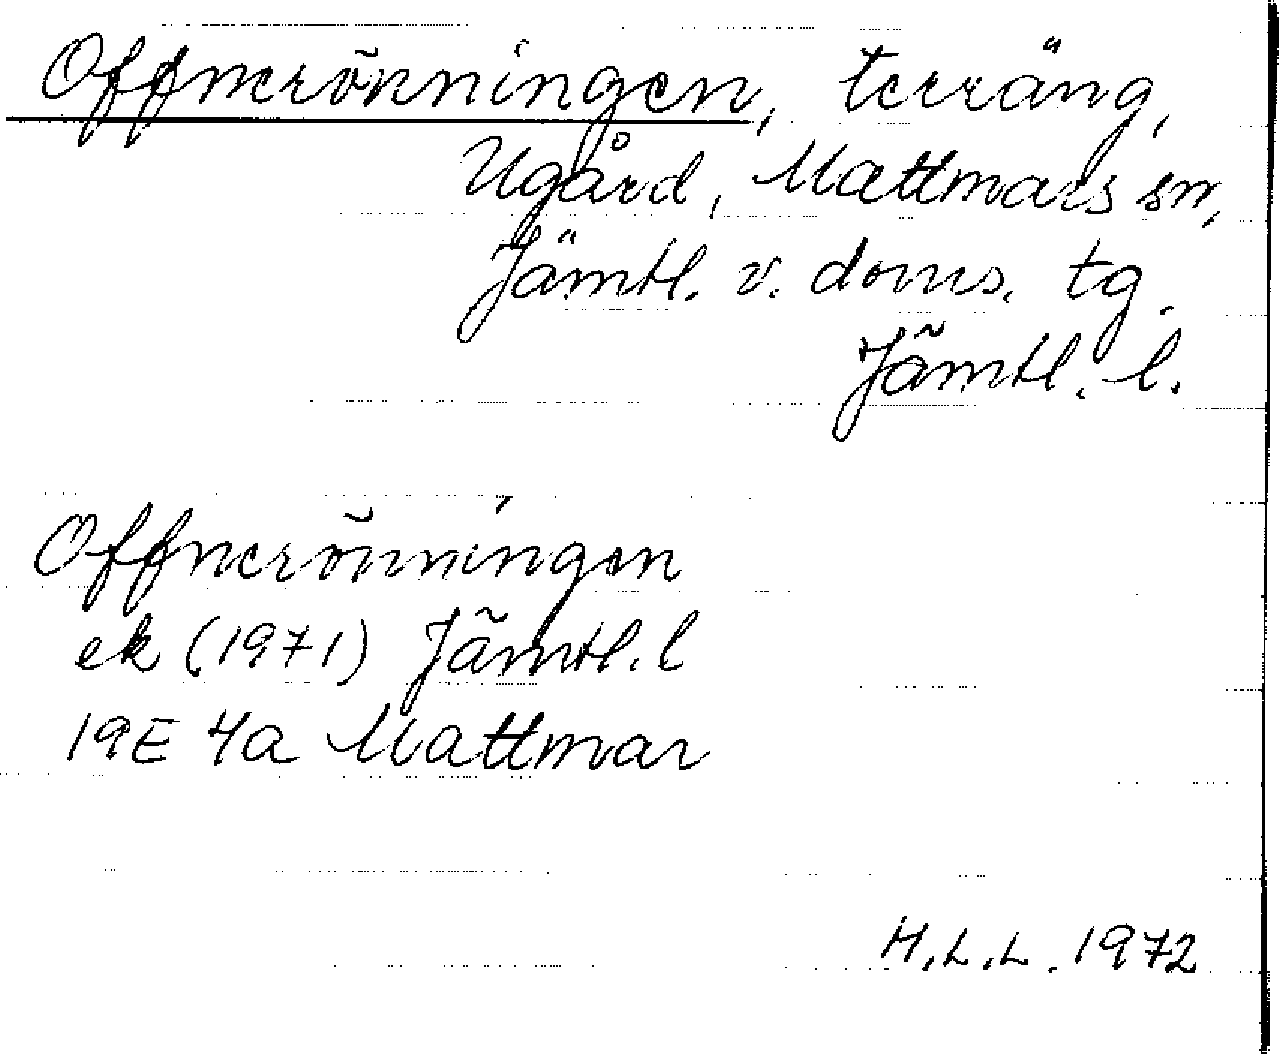 Offnerönningen, terräng,
Ugård, Mattmars sn,
Jämtl. v. doms. tg.
Jämtl. l.
Offnerönningen
ek (1971) Jämtl. l
19E 4a Mattmar
H.L.L. 1972